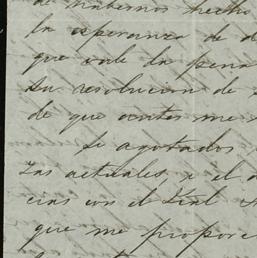 de habernos hecho
la esperanza de
que vale la pena
su resolucion de
de que antes me
se agotados
las actuales, x el
cias con el
que me propore